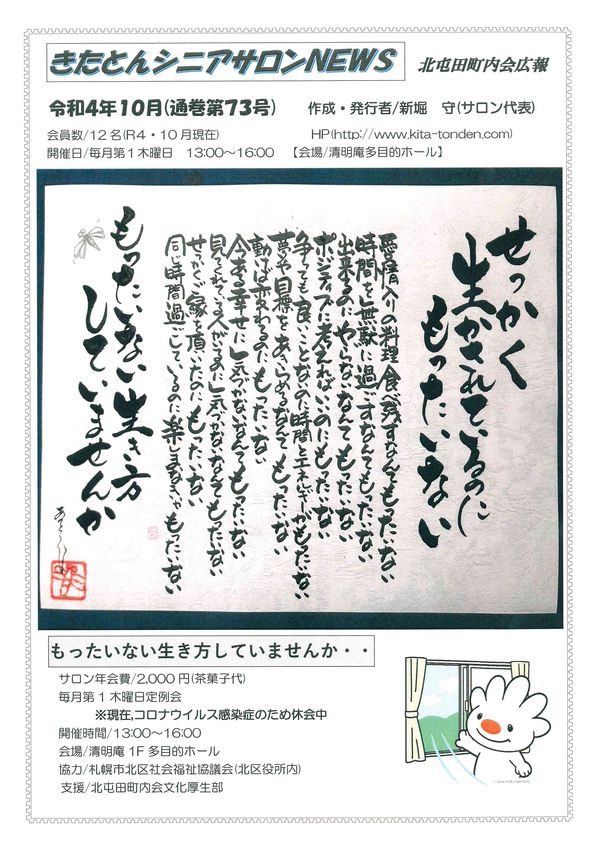 きたとんシニアサロンNEWS
北屯田町内会広報
令和4年10月(通巻第73号)
作成・発行者/新堀　守(サロン代表)
会員数/12名(R4・10月現在)
HP(http://www.kita-tonden.com)
開催日/毎月第1木曜日　13:00～16:00　【会場/清明庵多目的ホール】
せっかく
生かされているのに
もったいない
愛情入の料理食べ残すなんてもったいない
時間を無駄に過ごすなんてもったいない
出来るのにやらないなんてもったいない
ポジティブに考えればいいのにもったいない
争っても良いことないの時間とエネルギーがもったいない
夢や目標をあきらめるなんてもったいない
動けば変わるのにもったいない
今ある幸せに気づかないなんてもったいない
見てくれている人がいるのに気づかないなんてもったいない
せっかくご縁を頂いたのにもったいない
同じ時間過ごしているのに楽しまなきゃもったいない
もったいない生き方
していませんか
もったいない生き方していませんか・・
サロン年会費/2,000円(茶菓子代)
毎月第1木曜日定例会
※現在,コロナウイルス感染症のため休会中
開催時間/13:00～16:00
会場/清明庵 1F多目的ホール
協力/札幌市北区社会福祉協議会(北区役所内)
支援/北屯田町内会文化厚生部